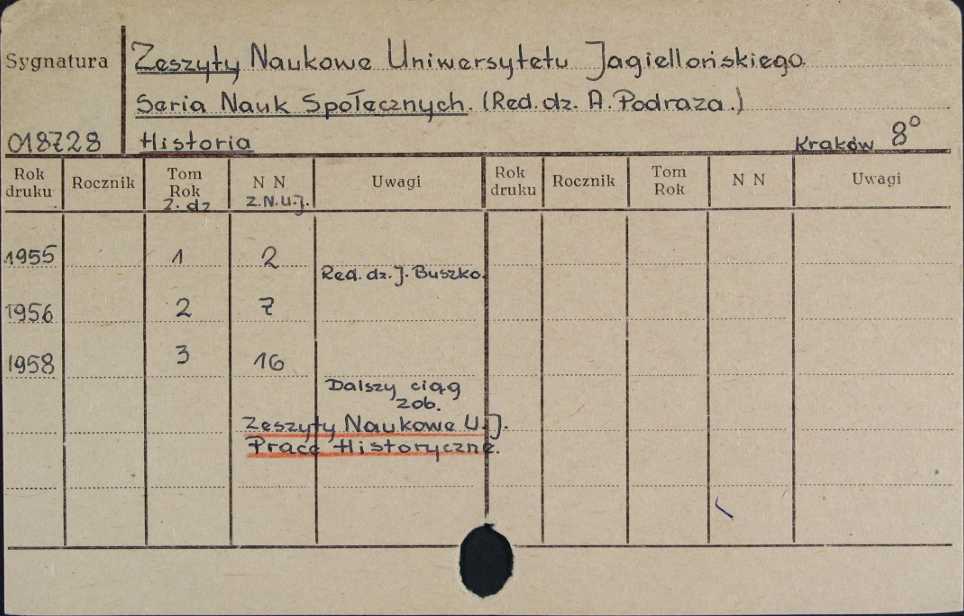 Sygnatura Zeszyty Naukowe Uniwersytetu Jagiellońskiego.
Seria Nauk Społecznych. (Red. dz. A. Podraza.)
018728 Historia Kraków 8°
Rok druku Rocznik Tom Rok N N Uwagi Rok druku Rocznik Tom Rok N N Uwagi
Z. dz Z.N.U.J.
1955 1 2
Red. dz. J. Buszko.
1956 2 7
1958 3 16
Dalszy ciąg
zob.
Zeszyty Naukowe U.J.
Prace Historyczne.